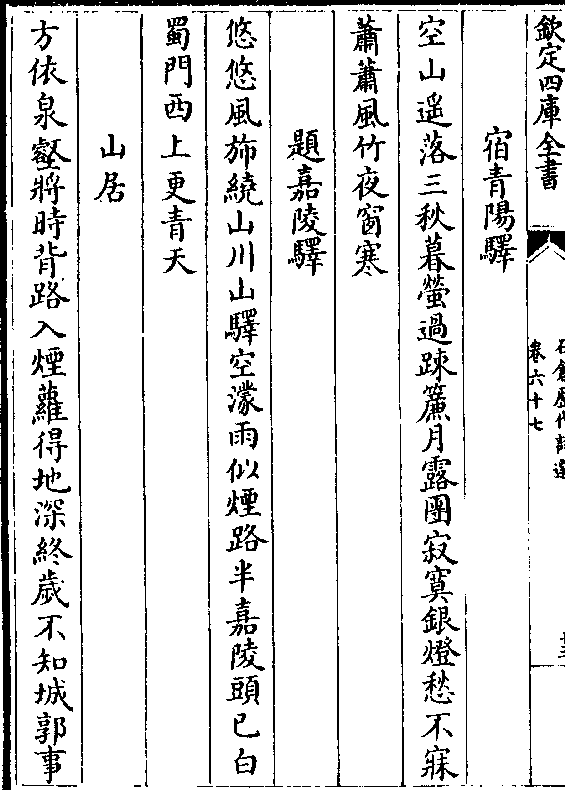 欽定四庫全書
石倉歷代詩選
卷六十七
宿青陽驛
空山遥落三秋暮螢過踈簾月露團寂寞銀燈愁不寐
蕭蕭風竹夜窗寒
題嘉陵驛
悠悠風斾繞山川山驛空濛雨似煙路半嘉陵頭已白
蜀門西上更青天
山居
方依泉壑將時背路入煙蘿得地深終歲不知城郭事